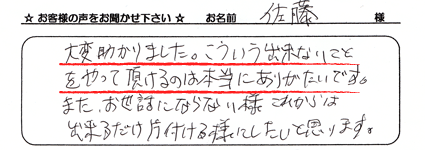 ☆ お客様の声をお聞かせ下さい ☆ お名前 佐藤 様
大変助かりました。こういう出来ないこと
をやって頂けるのは本当にありがたいです。
また、お世話にならない様 これからは
出来るだけ片付ける様にしたいと思います。